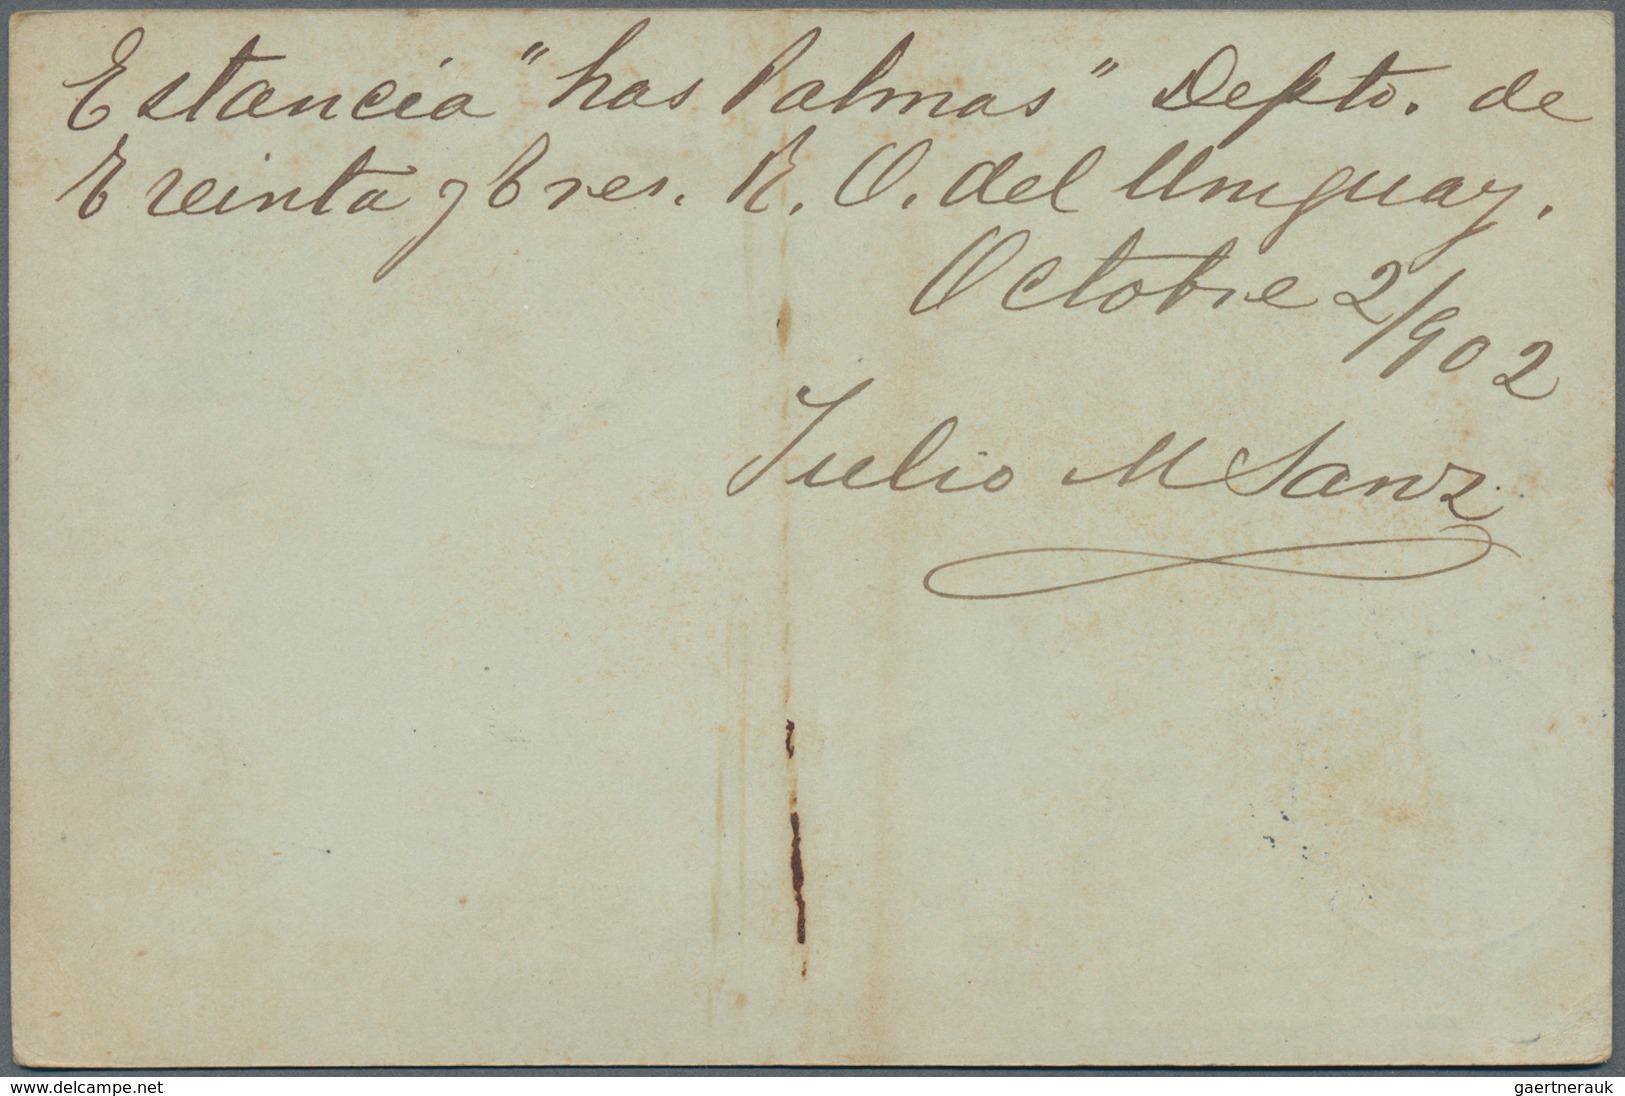 Estancia "Las Palmas" Depto. de
Treinta y Tres. R. O. del Uruguay.
Octubre 2/902
Julio M Sanz
www.delcampe.net
gaertnerauk